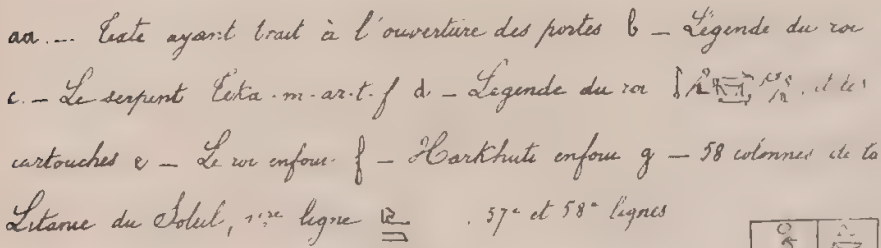 aa.... Texte ayant trait à l'ouverture des portes b — Légende du roi
c. — Le serpent Teka-m-ar-t-f d — Légende du roi et les
cartouches e — Le roi enfoui. f — Harkhuti enfoui g — 58 colonnes de la
Litanie du Soleil, 1ère ligne . 57e et 58e lignes